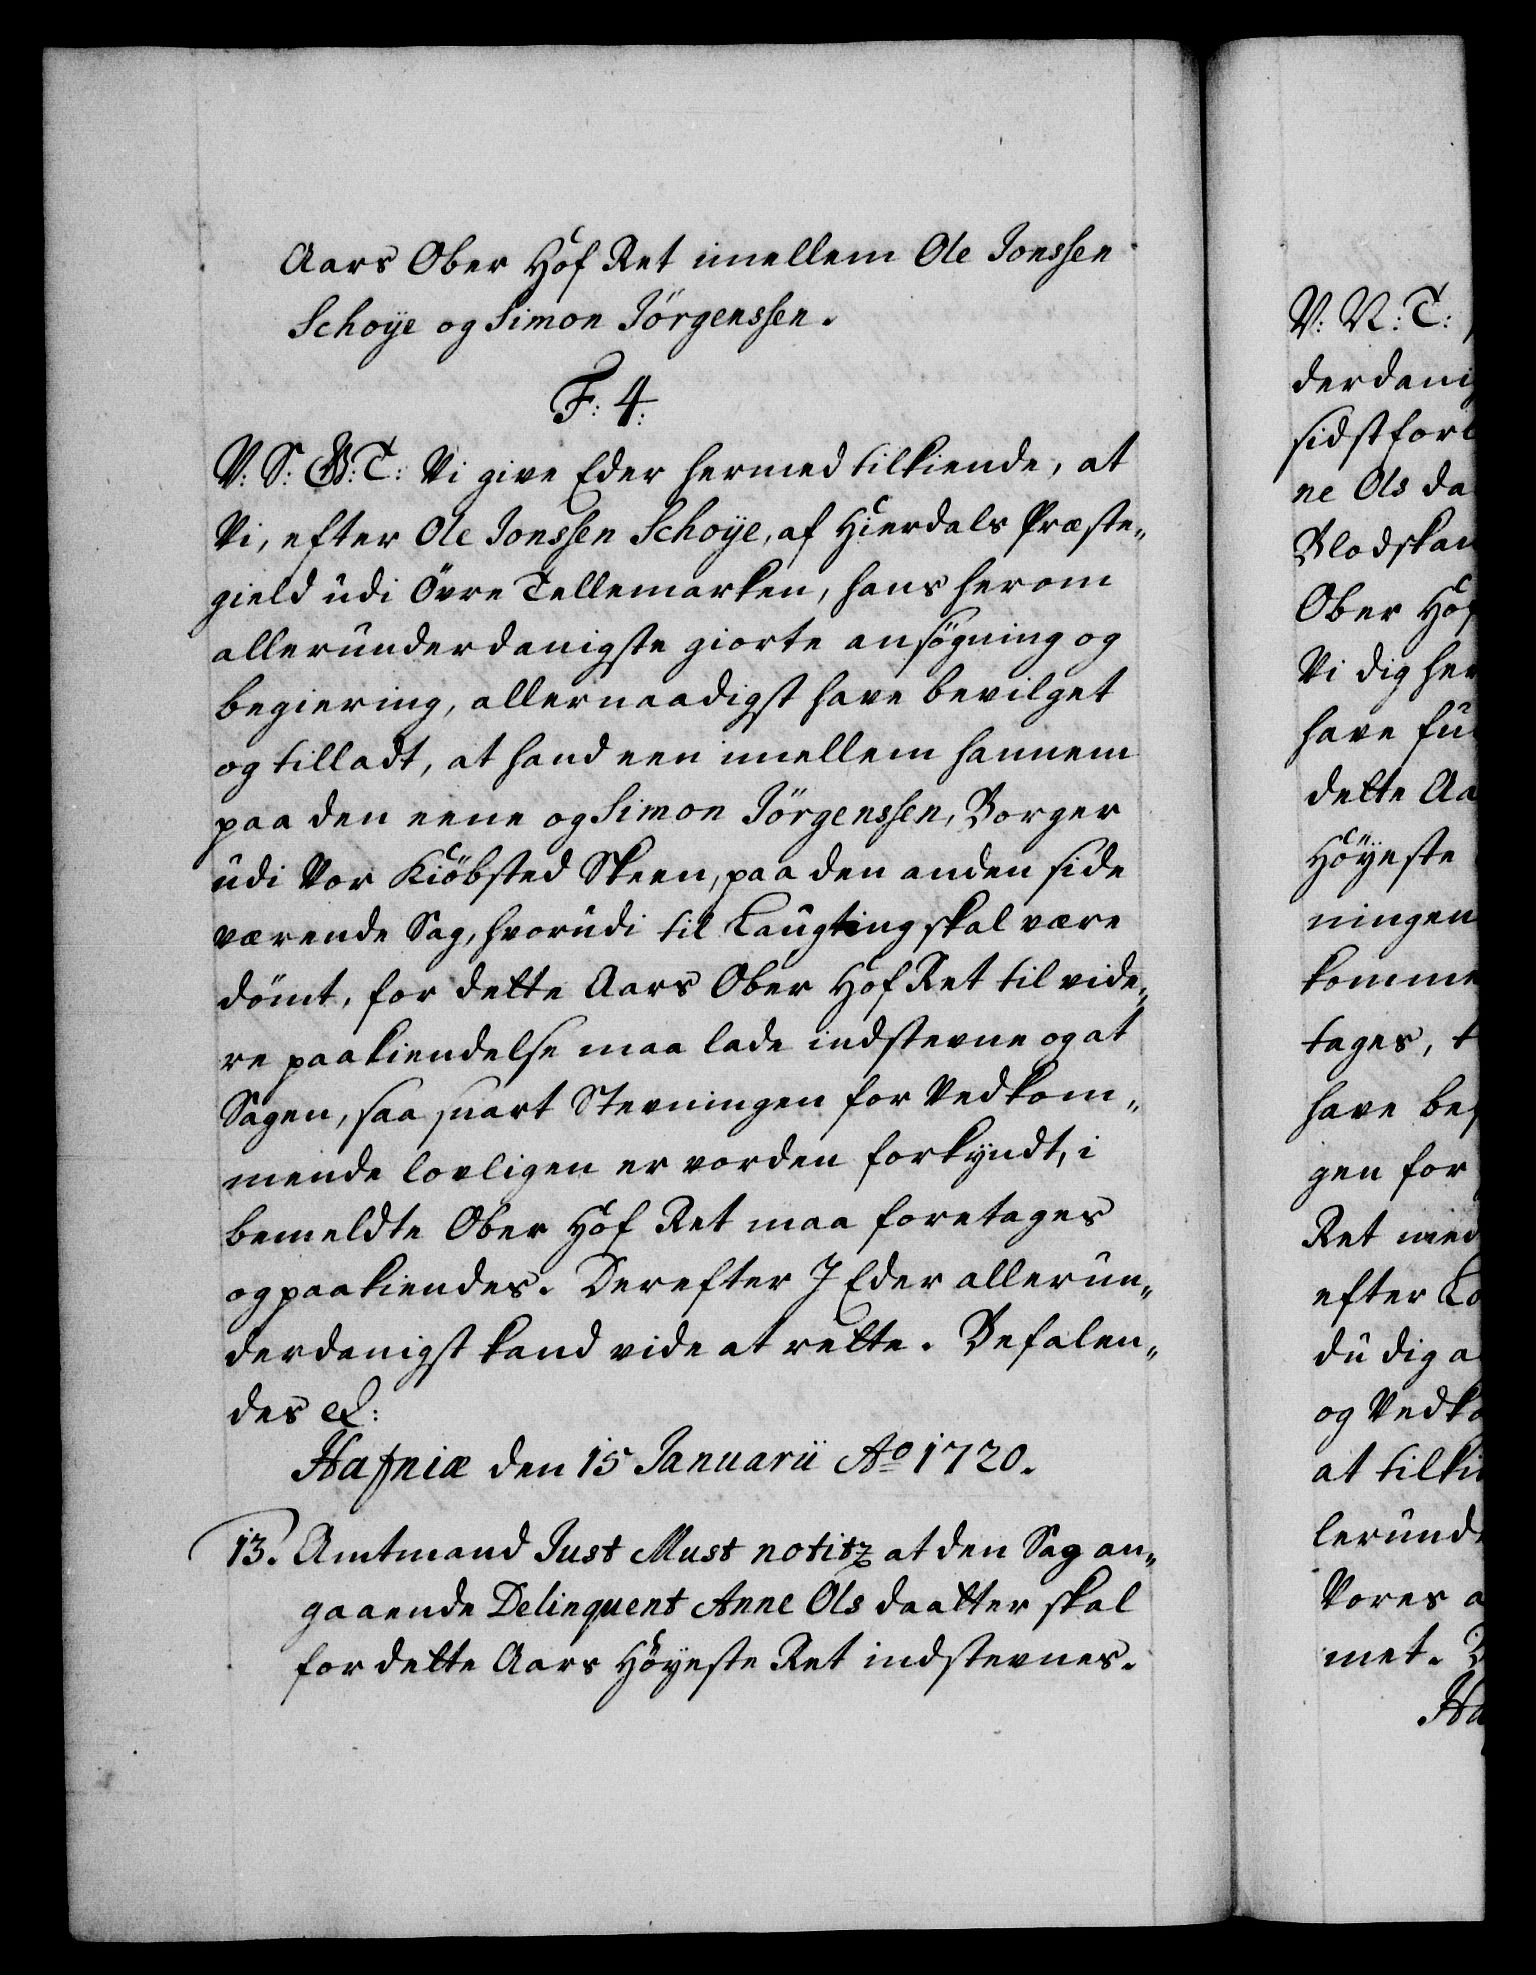 Aars Ober Hof Ret imellem Ole Jonssen
Schoye og Simon Jörgenssen.
F: 4:
V: S: G: T: Vi give Eder hermed tilkiende, at
Vi, efter Ole Jonssen Schoye, af Hierdals Præste„
gield udi Övre Tellemarken, hans herom
allerunderdanigste giorte ansögning og
begiering, allernaadigst have bevilget
og tilladt, at hand een imellem hannem
paa den eene og Simon Jörgenssen, Borger
udi Vor Kiöbsted Skeen, paa den anden side
værende Sag, hvorudi til Laugting skal være
dömt, for dette Aars Ober Hof Ret til vide„
re paakiendelse maa lade indstevne og at
Sagen, saa snart Stevningen for Vedkom„
mende lovligen er vorden forkyndt, i
bemeldte Ober Hof Ret maa foretages
og paakiendes. Derefter I Eder allerun„
derdanigst kand vide at rette. Befalen„
des etc:
Hafniæ den 15 Januarii Ao 1720.
13. Amtmand Just Must notitz at den Sag an„
gaaende Delinquent Anne Ols daatter skal
for dette Aars Höyeste Ret indstevnes.
V: N: T:
derdanig
sidst forl
ne Ols da
Blodskam
Ober Hof
Vi dig her
have fun
dette Aa
Höyeste
ningen
komme
tages, t
have be
gen for
Ret med
efter Lo
du dig a
og Vedko
at tilki
lerunde
Vores a
met. B
Ha